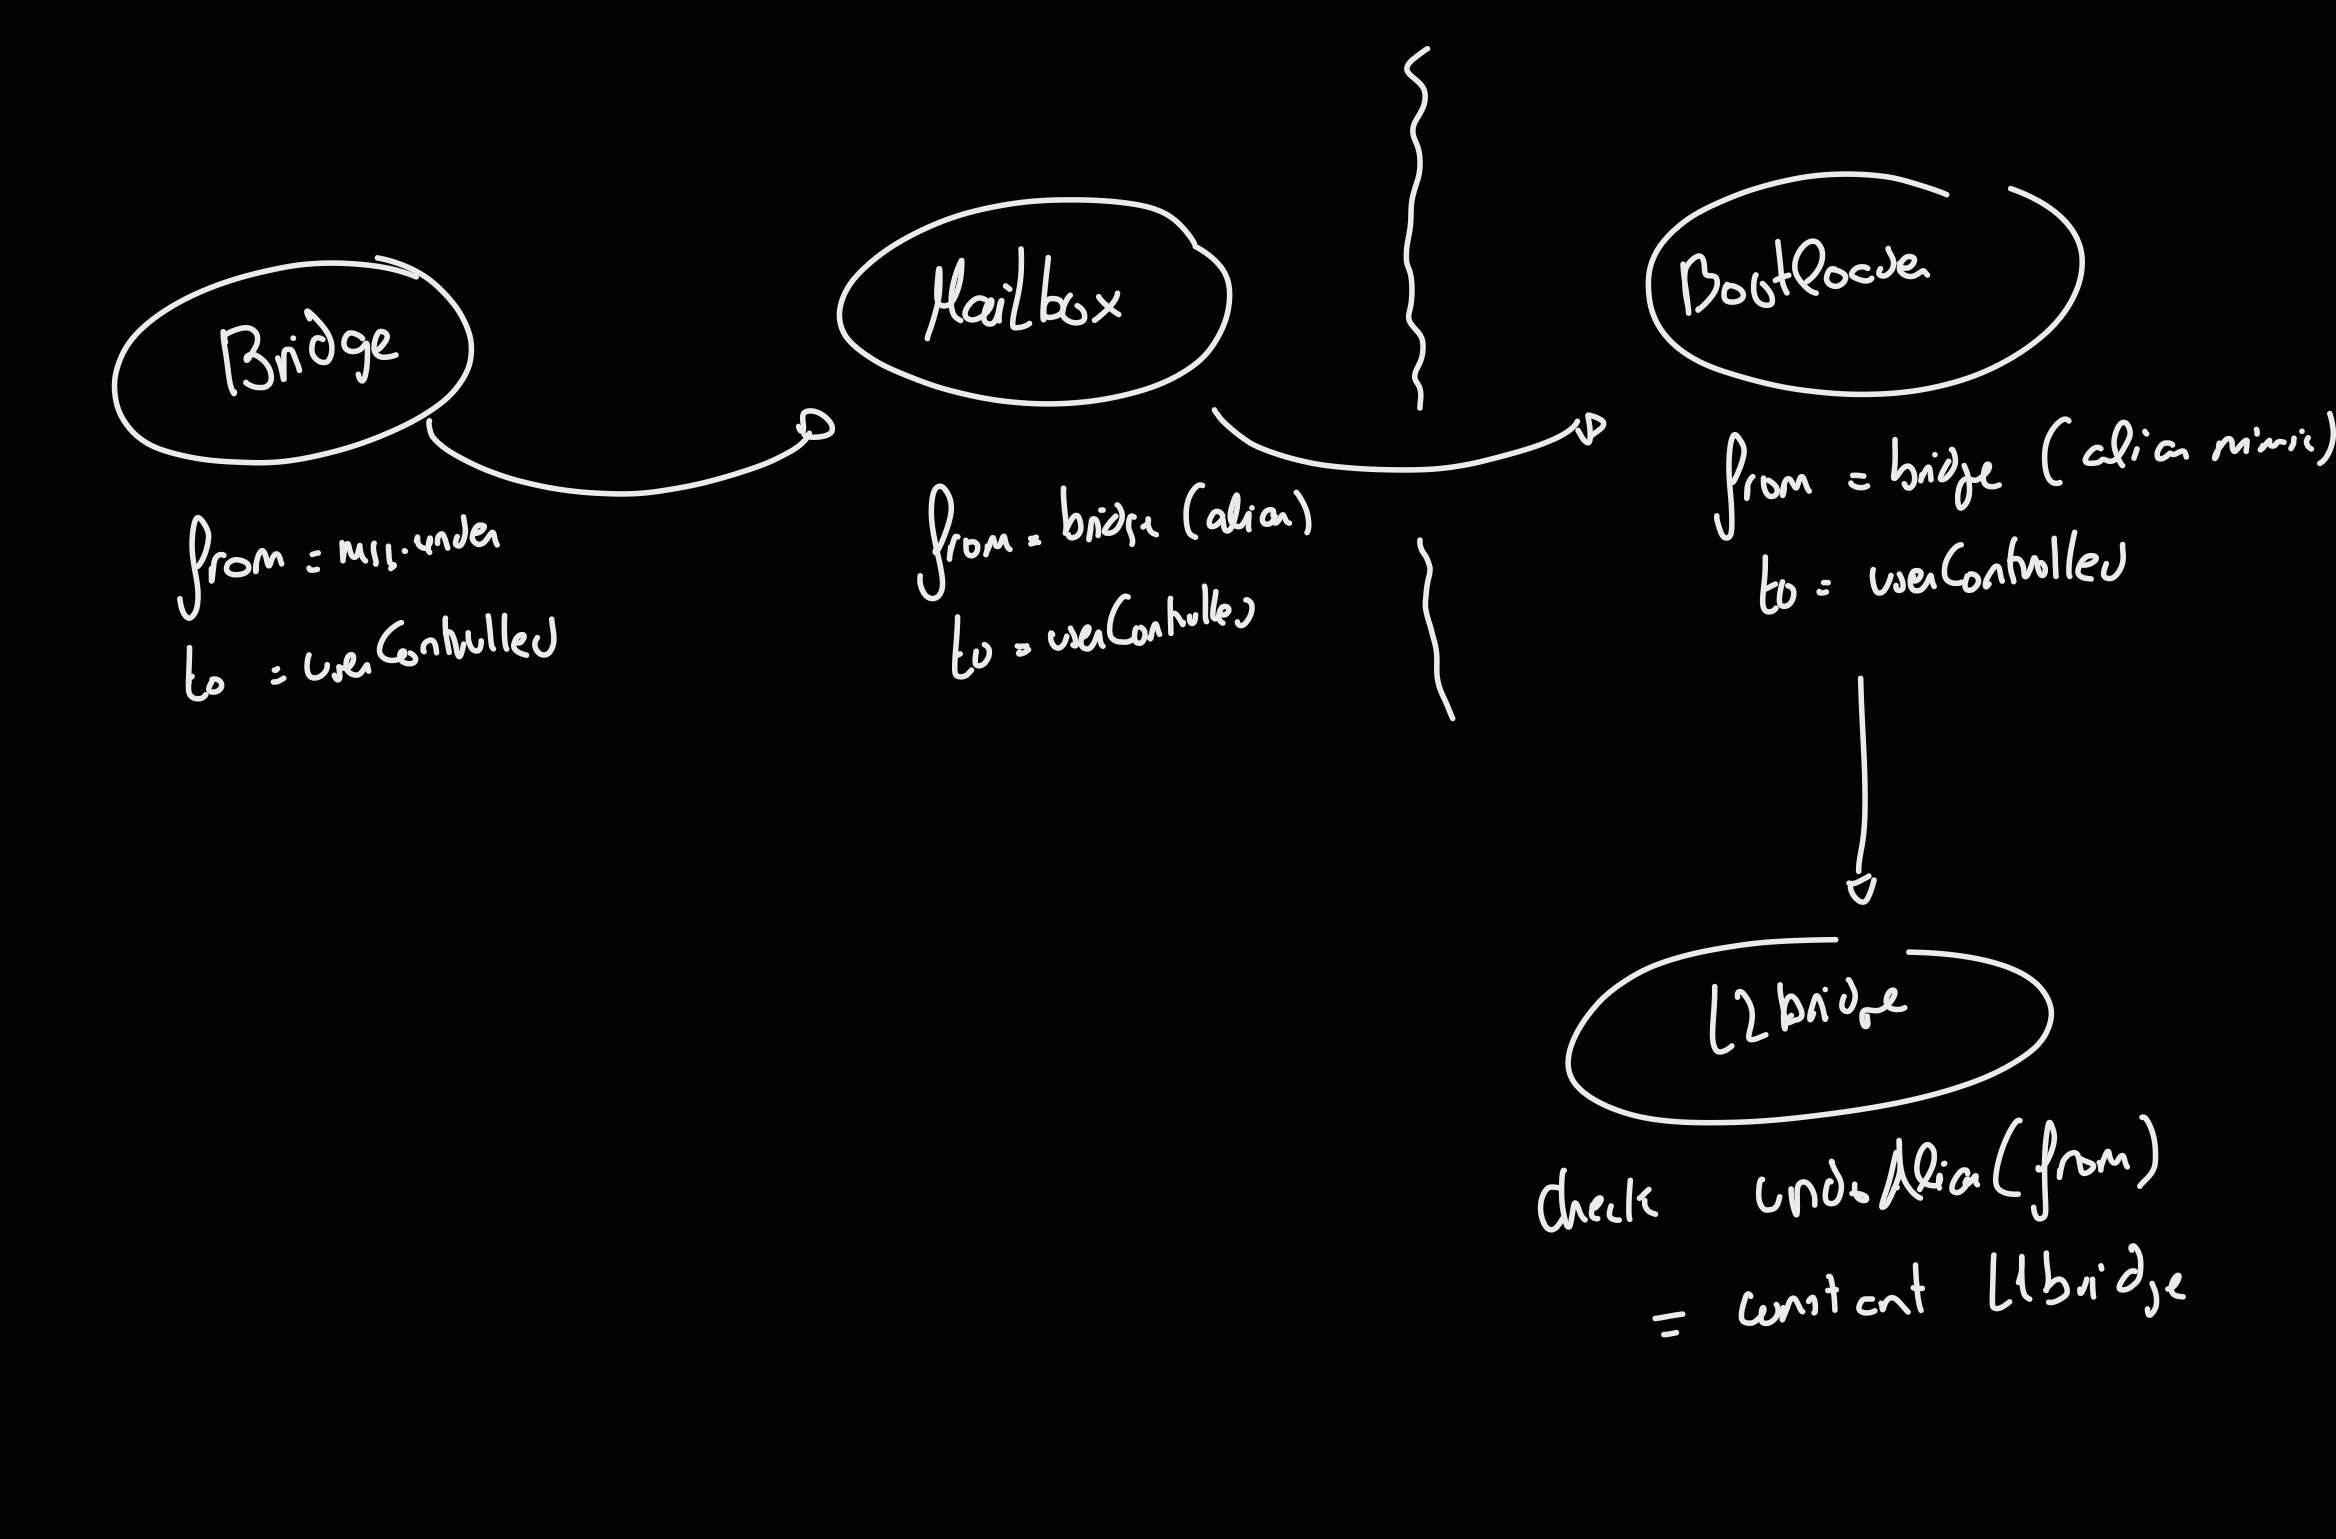 Bridge
from = msg.sender
to = userControlled
Mailbox
from = bridge (alias)
to = userControlled
BootLoader
from = bridge (alias mimic)
to = userControlled
L2 bridge
check undoAlias(from)
= constant L1bridge